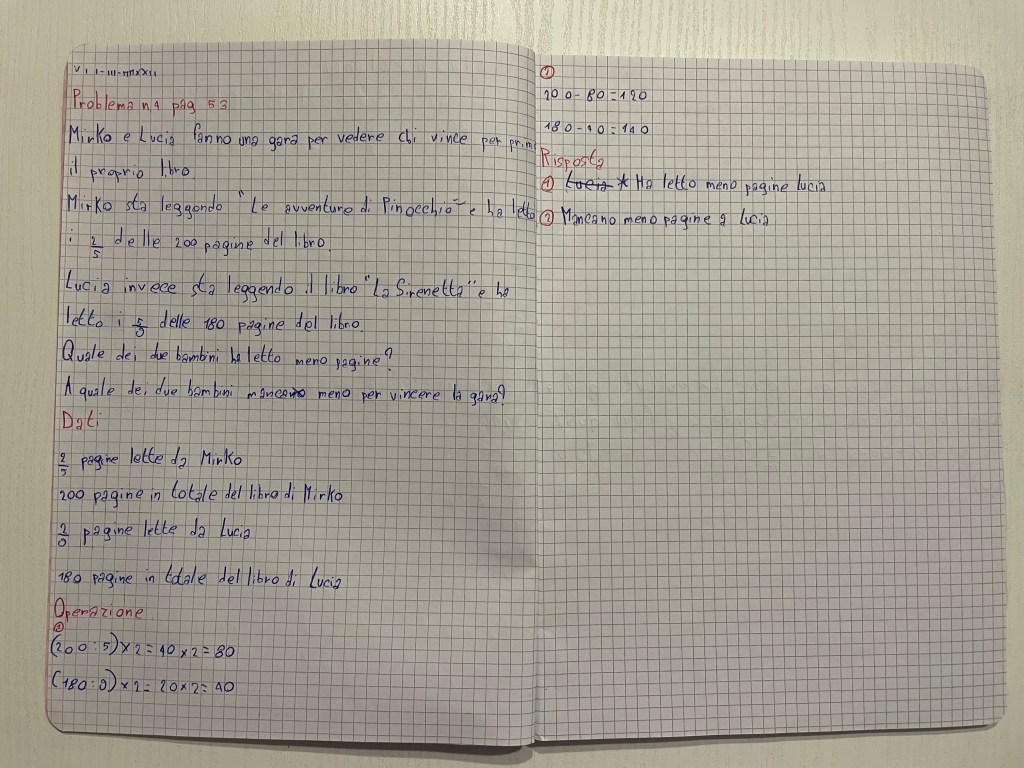 Problema n1 pag 53
Mirko e Lucia fanno una gara per vedere chi vince per primo
il proprio libro
Mirko sta leggendo "Le avventure di Pinocchio" e ha letto
i 2/5 delle 200 pagine del libro.
Lucia invece sta leggendo il libro "La Sirenetta" e ha
letto i delle 180 pagine del libro.
Quale dei due bambini ha letto meno pagine?
A quale dei due bambini mancano meno per vincere la gara?
Dati
2/5 pagine lette da Mirko
200 pagine in totale del libro di Mirko
2/9 pagine lette da Lucia
180 pagine in totale del libro di Lucia
Operazione
①
(200:5)×2=40×2=80
(180:9)×2=20×2=40
②
200-80=120
180-40=140
Risposta
① Lucia * Ha letto meno pagine Lucia
② Mancano meno pagine a Lucia